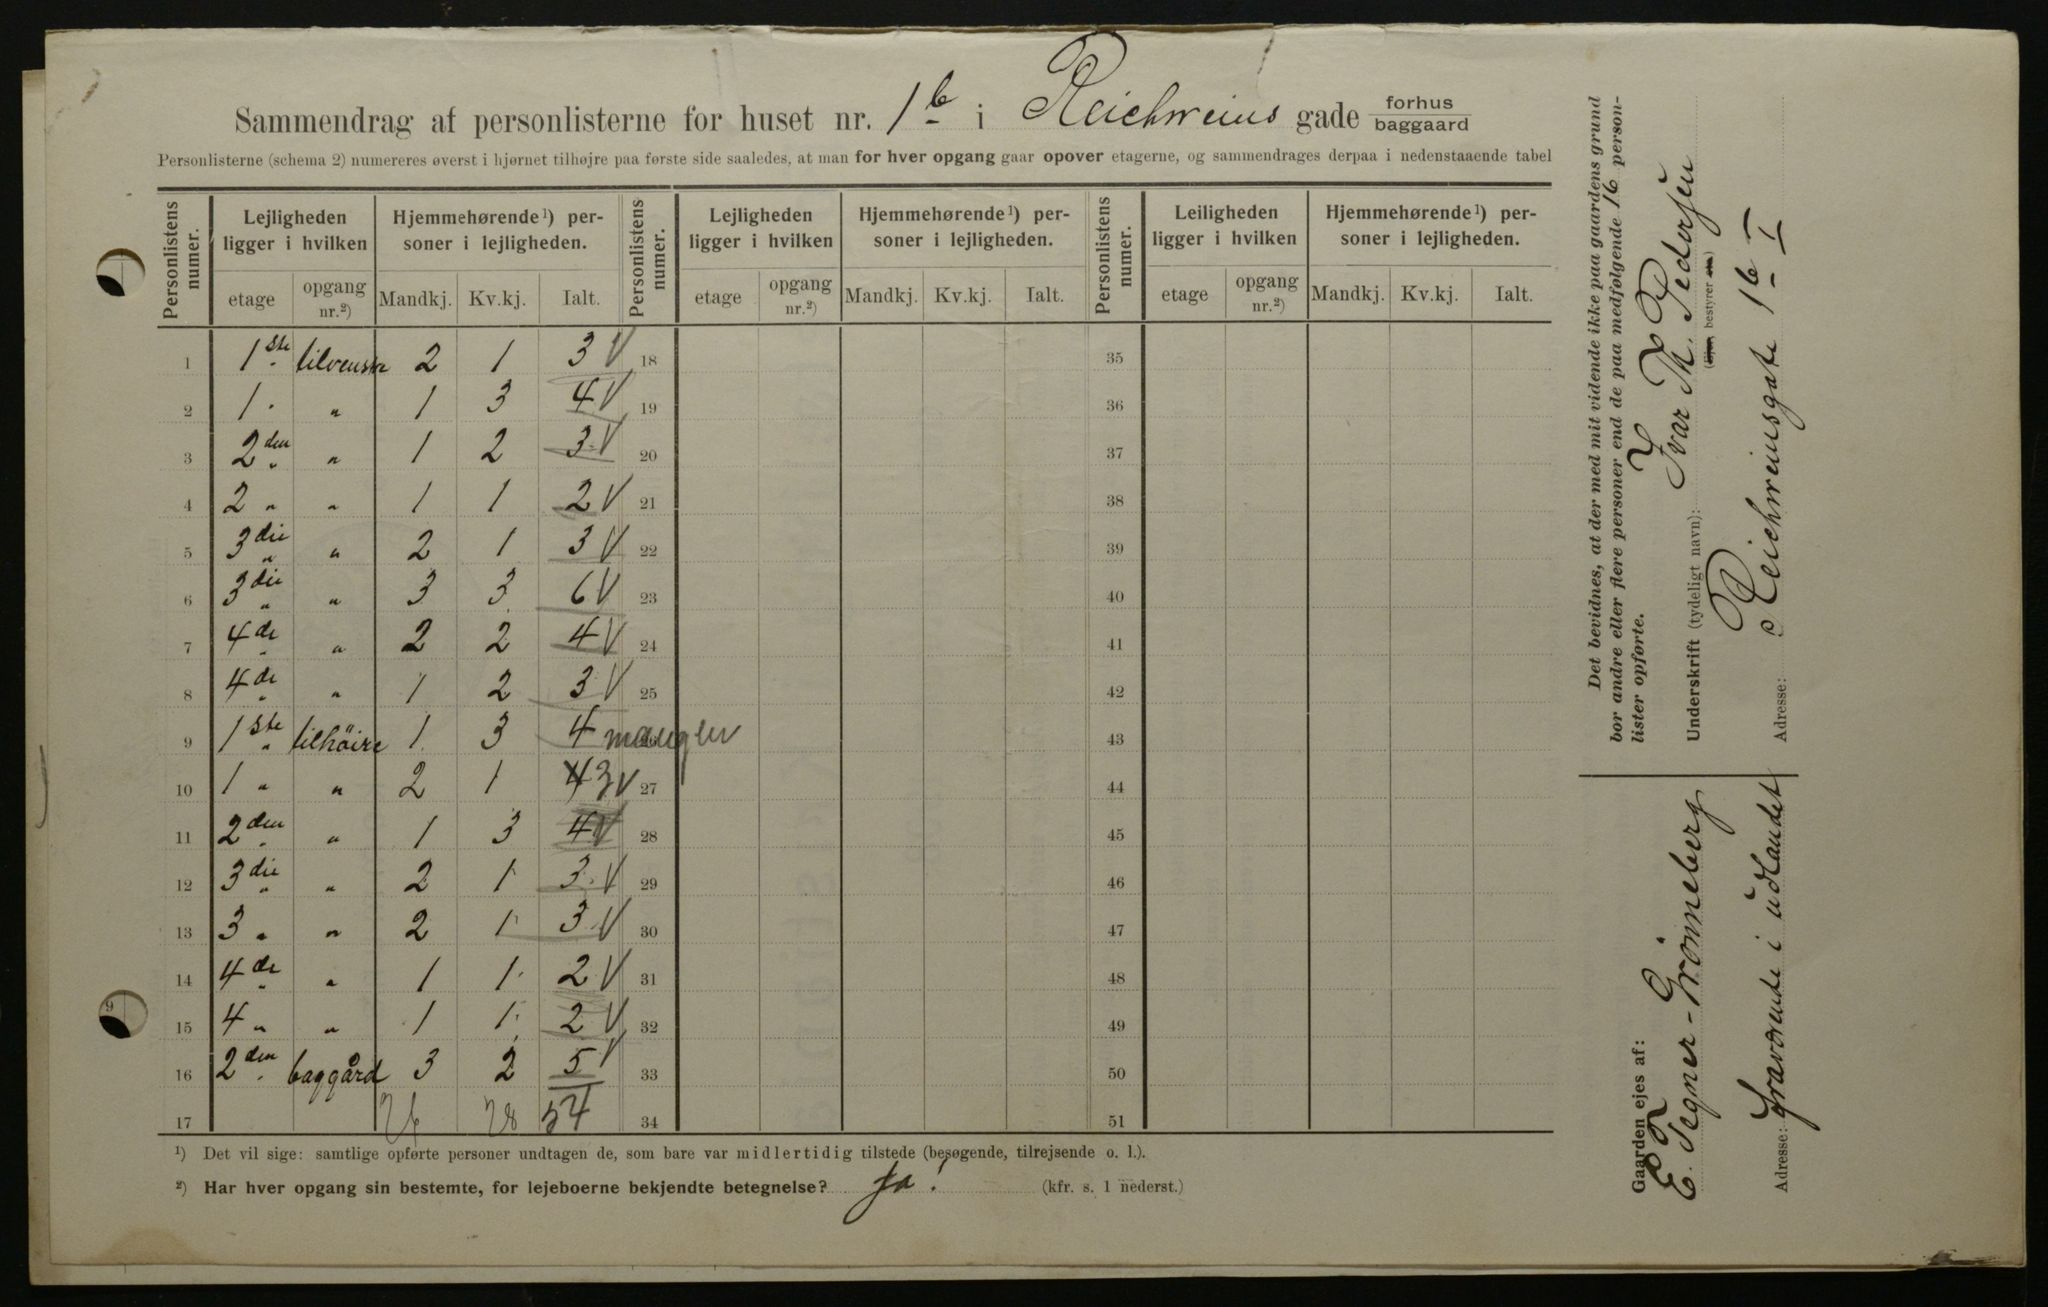 Sammendrag af personlisterne for huset nr. 1b i Reichweins gade forhus / baggaard
Personlisterne (schema 2) numereres øverst i hjørnet tilhøjre paa første side saaledes, at man for hver opgang gaar opover etagerne, og sammendrages derpaa i nedenstaaende tabel
Personlistens numer. | Lejligheden ligger i hvilken | Hjemmehørende¹) personer i lejligheden. | Personlistens numer. | Lejligheden ligger i hvilken | Hjemmehørende¹) personer i lejligheden. | Personlistens numer. | Leiligheden ligger i hvilken | Hjemmehørende¹) personer i lejligheden.
etage | opgang nr.²) | Mandkj. | Kv.kj. | Ialt. | etage | opgang nr.²) | Mandkj. | Kv.kj. | Ialt. | etage | opgang nr.²) | Mandkj. | Kv.kj. | Ialt.
1 | 1ste | tilvenstre | 2 | 1 | 3 V | 18 | 35
2 | 1 " | " | 1 | 3 | 4 V | 19 | 36
3 | 2den " | " | 1 | 2 | 3 V | 20 | 37
4 | 2 " | " | 1 | 1 | 2 V | 21 | 38
5 | 3die " | " | 2 | 1 | 3 V | 22 | 39
6 | 3die " | " | 3 | 3 | 6 V | 23 | 40
7 | 4de " | " | 2 | 2 | 4 V | 24 | 41
8 | 4de " | " | 1 | 2 | 3 V | 25 | 42
9 | 1ste " | tilhöire | 1 | 3 | 4 mangler | 26 | 43
10 | 1 " | " | 2 | 1 | 4 3 V | 27 | 44
11 | 2den " | " | 1 | 3 | 4 V | 28 | 45
12 | 3die " | " | 2 | 1 | 3 V | 29 | 46
13 | 3 " | " | 2 | 1 | 3 V | 30 | 47
14 | 4de " | " | 1 | 1 | 2 V | 31 | 48
15 | 4 " | " | 1 | 1 | 2 V | 32 | 49
16 | 2den | baggård | 3 | 2 | 5 V | 33 | 50
17 | 26 | 28 | 54 | 34 | 51
¹) Det vil sige: samtlige opførte personer undtagen de, som bare var midlertidig tilstede (besøgende, tilrejsende o. l.).
²) Har hver opgang sin bestemte, for lejeboerne bekjendte betegnelse? Ja! (kfr. s. 1 nederst.)
Det bevidnes, at der med mit vidende ikke paa gaardens grund
bor andre eller flere personer end de paa medfølgende 16 person-
lister opførte.
Underskrift (tydeligt navn): Ivar Th. Pedersen
(Ejer, bestyrer etc.)
Adresse: Reichweinsgate 1b I
Gaarden ejes af:
E. Tegner-Grönneberg
Adresse: fraværende i udlandet
9